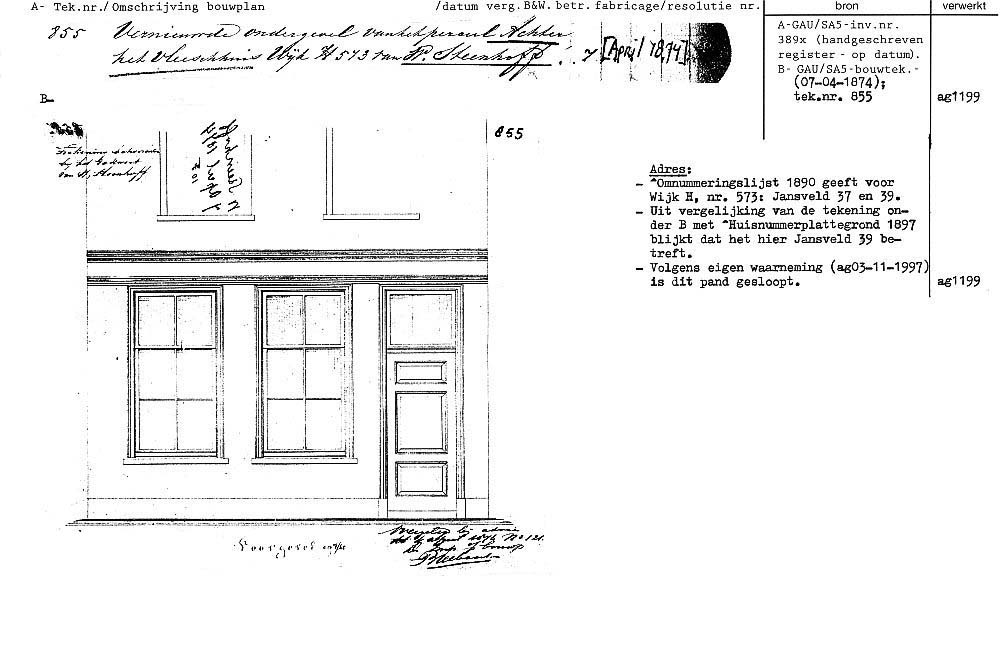 A- Tek.nr./Omschrijving bouwplan /datum verg.B&W. betr. fabricage/resolutie nr. bron verwerkt
855 Vernieuwde ondergevel van het perceel Achter
het Vleeschhuis Wijk H 573 van P. Steenhoff. 7 [April 1874]
A-GAU/SA5-inv.nr.
389x (handgeschreven
register - op datum).
B- GAU/SA5-bouwtek.-
(07-04-1874);
tek.nr. 855 ag1199
B-
855
Adres:
- ^Omnummeringslijst 1890 geeft voor
Wijk H, nr. 573: Jansveld 37 en 39.
- Uit vergelijking van de tekening on-
der B met ^Huisnummerplattegrond 1897
blijkt dat het hier Jansveld 39 be-
treft.
- Volgens eigen waarneming (ag03-11-1997)
is dit pand gesloopt. ag1199
Tekening
bij het
van Steenhoff
Voorgevel
No 121.